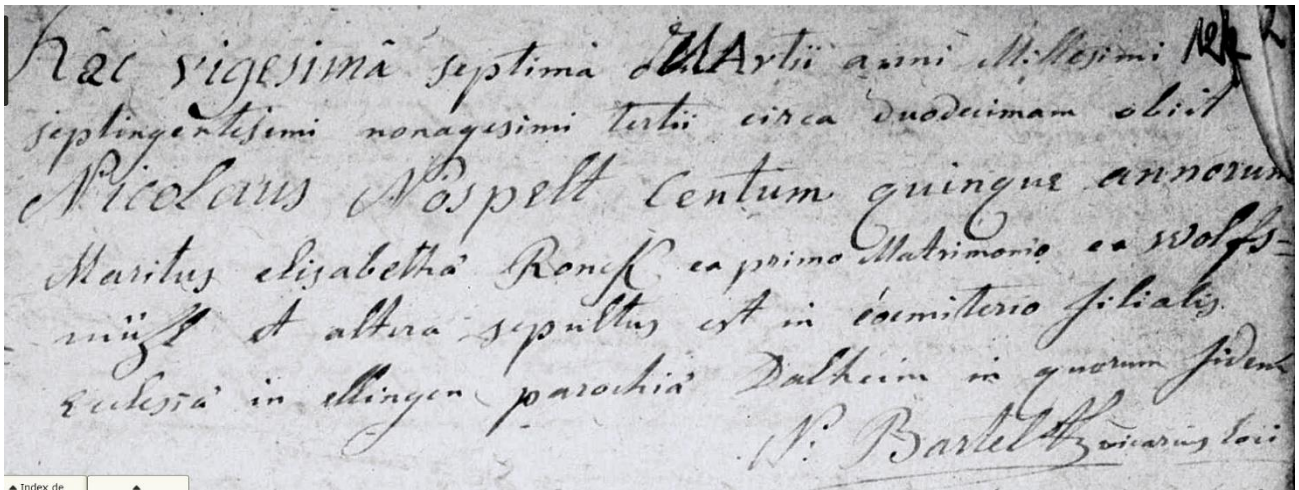 Hâc vigesimâ septimâ Martii anni Millesimi
septingentesimi nonagesimi tertii circa duodecimam obiit
Nicolaus Nospelt Centum quinque annorum
Maritus elisabethâ Ronck ex primo Matrimonio ex Wolfs=
müll et altera sepultus est in coemiterio filialis
Eclesiâ in ellingen parochiâ Dalheim in quorum fidem
N. Bartel vicarius loci
Index de